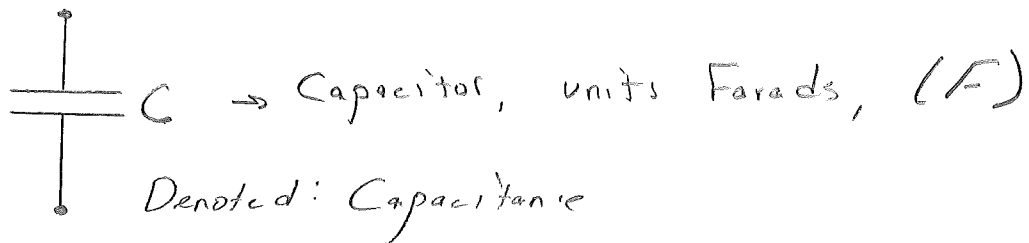 C → Capacitor, units Farads, (F)
Denoted: Capacitance